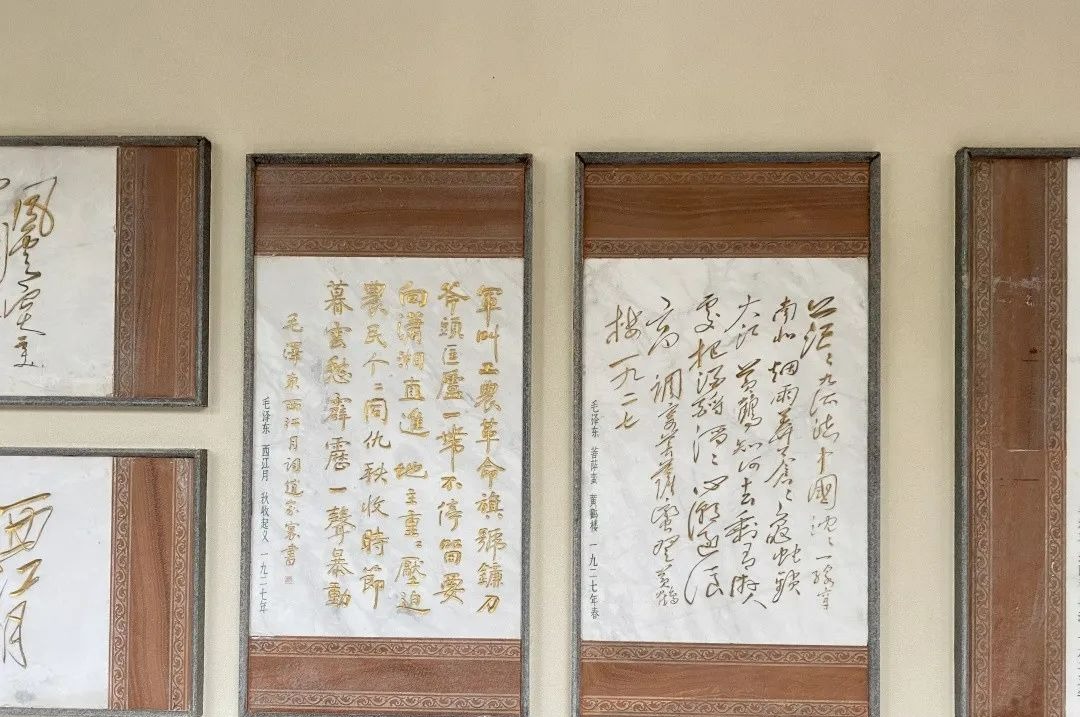 茫〻九派流中國沈〻一線穿
南北烟雨莽蒼〻龜蛇鎖
大江 黃鶴知何去剩有遊人
處把酒酹滔〻心潮逐浪
高 調寄菩薩蠻登黃鶴
樓 一九二七
毛泽东 菩萨蛮 黄鹤楼 一九二七年春
軍叫工農革命旗號鐮刀
斧頭匡廬一帶不停留要
向瀟湘直進地主重〻壓迫
農民个〻同仇秋收時節
暮雲愁霹靂一聲暴動
毛澤東西江月詞
毛泽东 西江月 秋收起义 一九二七年
風雲突变
西江月